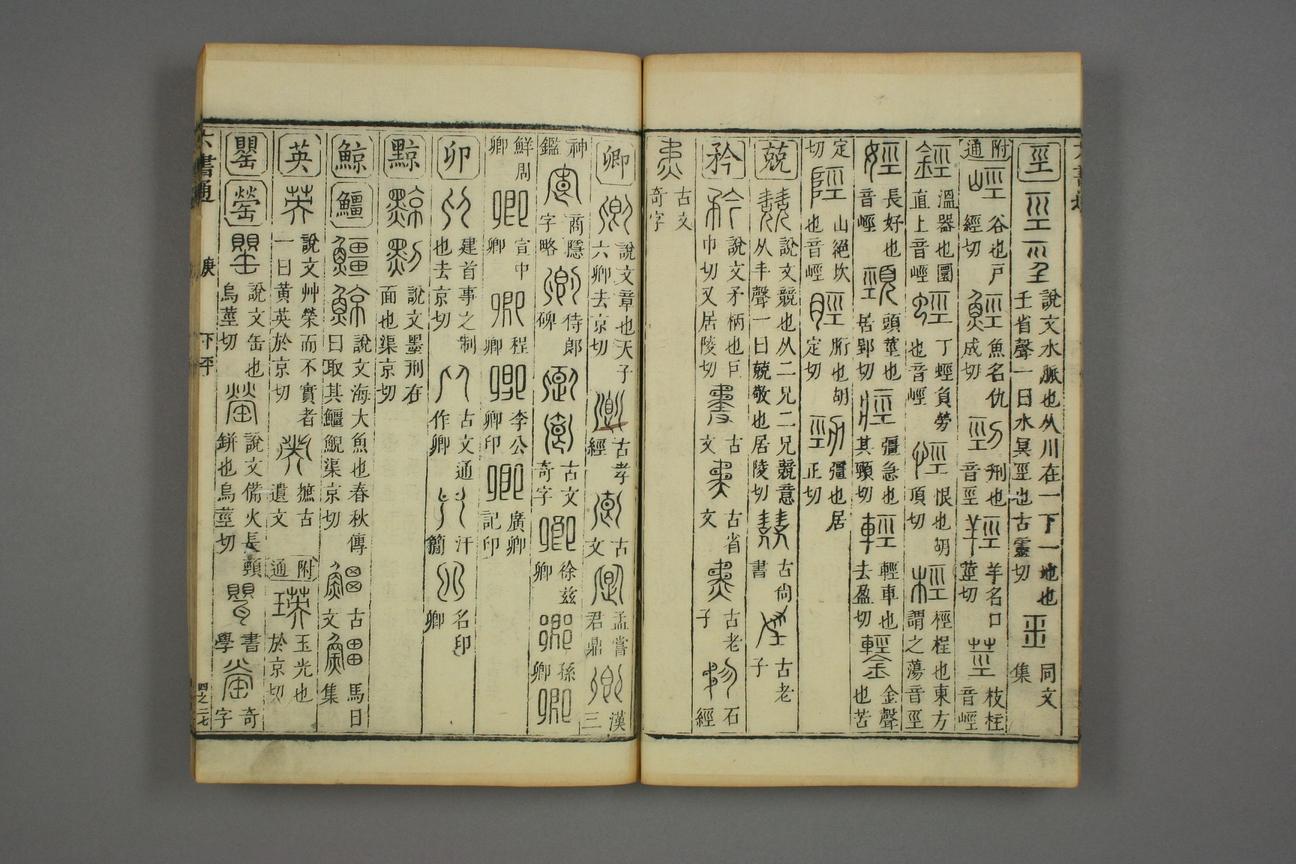 巠 說文水脈也从川在一下一地也壬省聲一曰水冥巠也古靈切 同文集
附通 谷也戶經切 魚名仇成切 刑也音巠 羊名口莖切 枝柱音𡷨
溫器也圜直上音𡷨 丁蛵負勞也音𡷨 恨也胡頂切 桱桯也東方謂之蕩音巠
長好也音𡷨 頭莖也居郢切 彊急也其頸切 輕車也去盈切 金聲也苦
定切 山絕坎也音𡷨 胻也胡定切 彊也居正切
兢 說文競也从二兄二兄競意从丰聲一曰兢敬也居陵切 古尚書 古老子
矜 說文矛柄也巨巾切又居陵切 古文 古省文 古老子 石經
古文奇字
卿 說文章也天子六卿去京切 古孝經 古文 孟嘗君鼎 漢三
神鑑 商隱字略 侍郎碑 古文奇字 徐茲卿 孫卿
鮮周卿 宣中卿 程卿 李公卿印 廣卿記印
卯 建首事之制也去京切 古文通作卿 汗簡 名印卿
黥 說文墨刑在面也渠京切
鯨 鱷 說文海大魚也春秋傳曰取其鱷鯢渠京切 古文 馬日集
英 說文艸榮而不實者一曰黃英於京切 摭古遺文 附通 瑛 玉光也於京切
罌 罃 說文缶也烏莖切 說文備火長頸缾也烏莖切 書學 奇字
六書通 庚 下平 四之二七